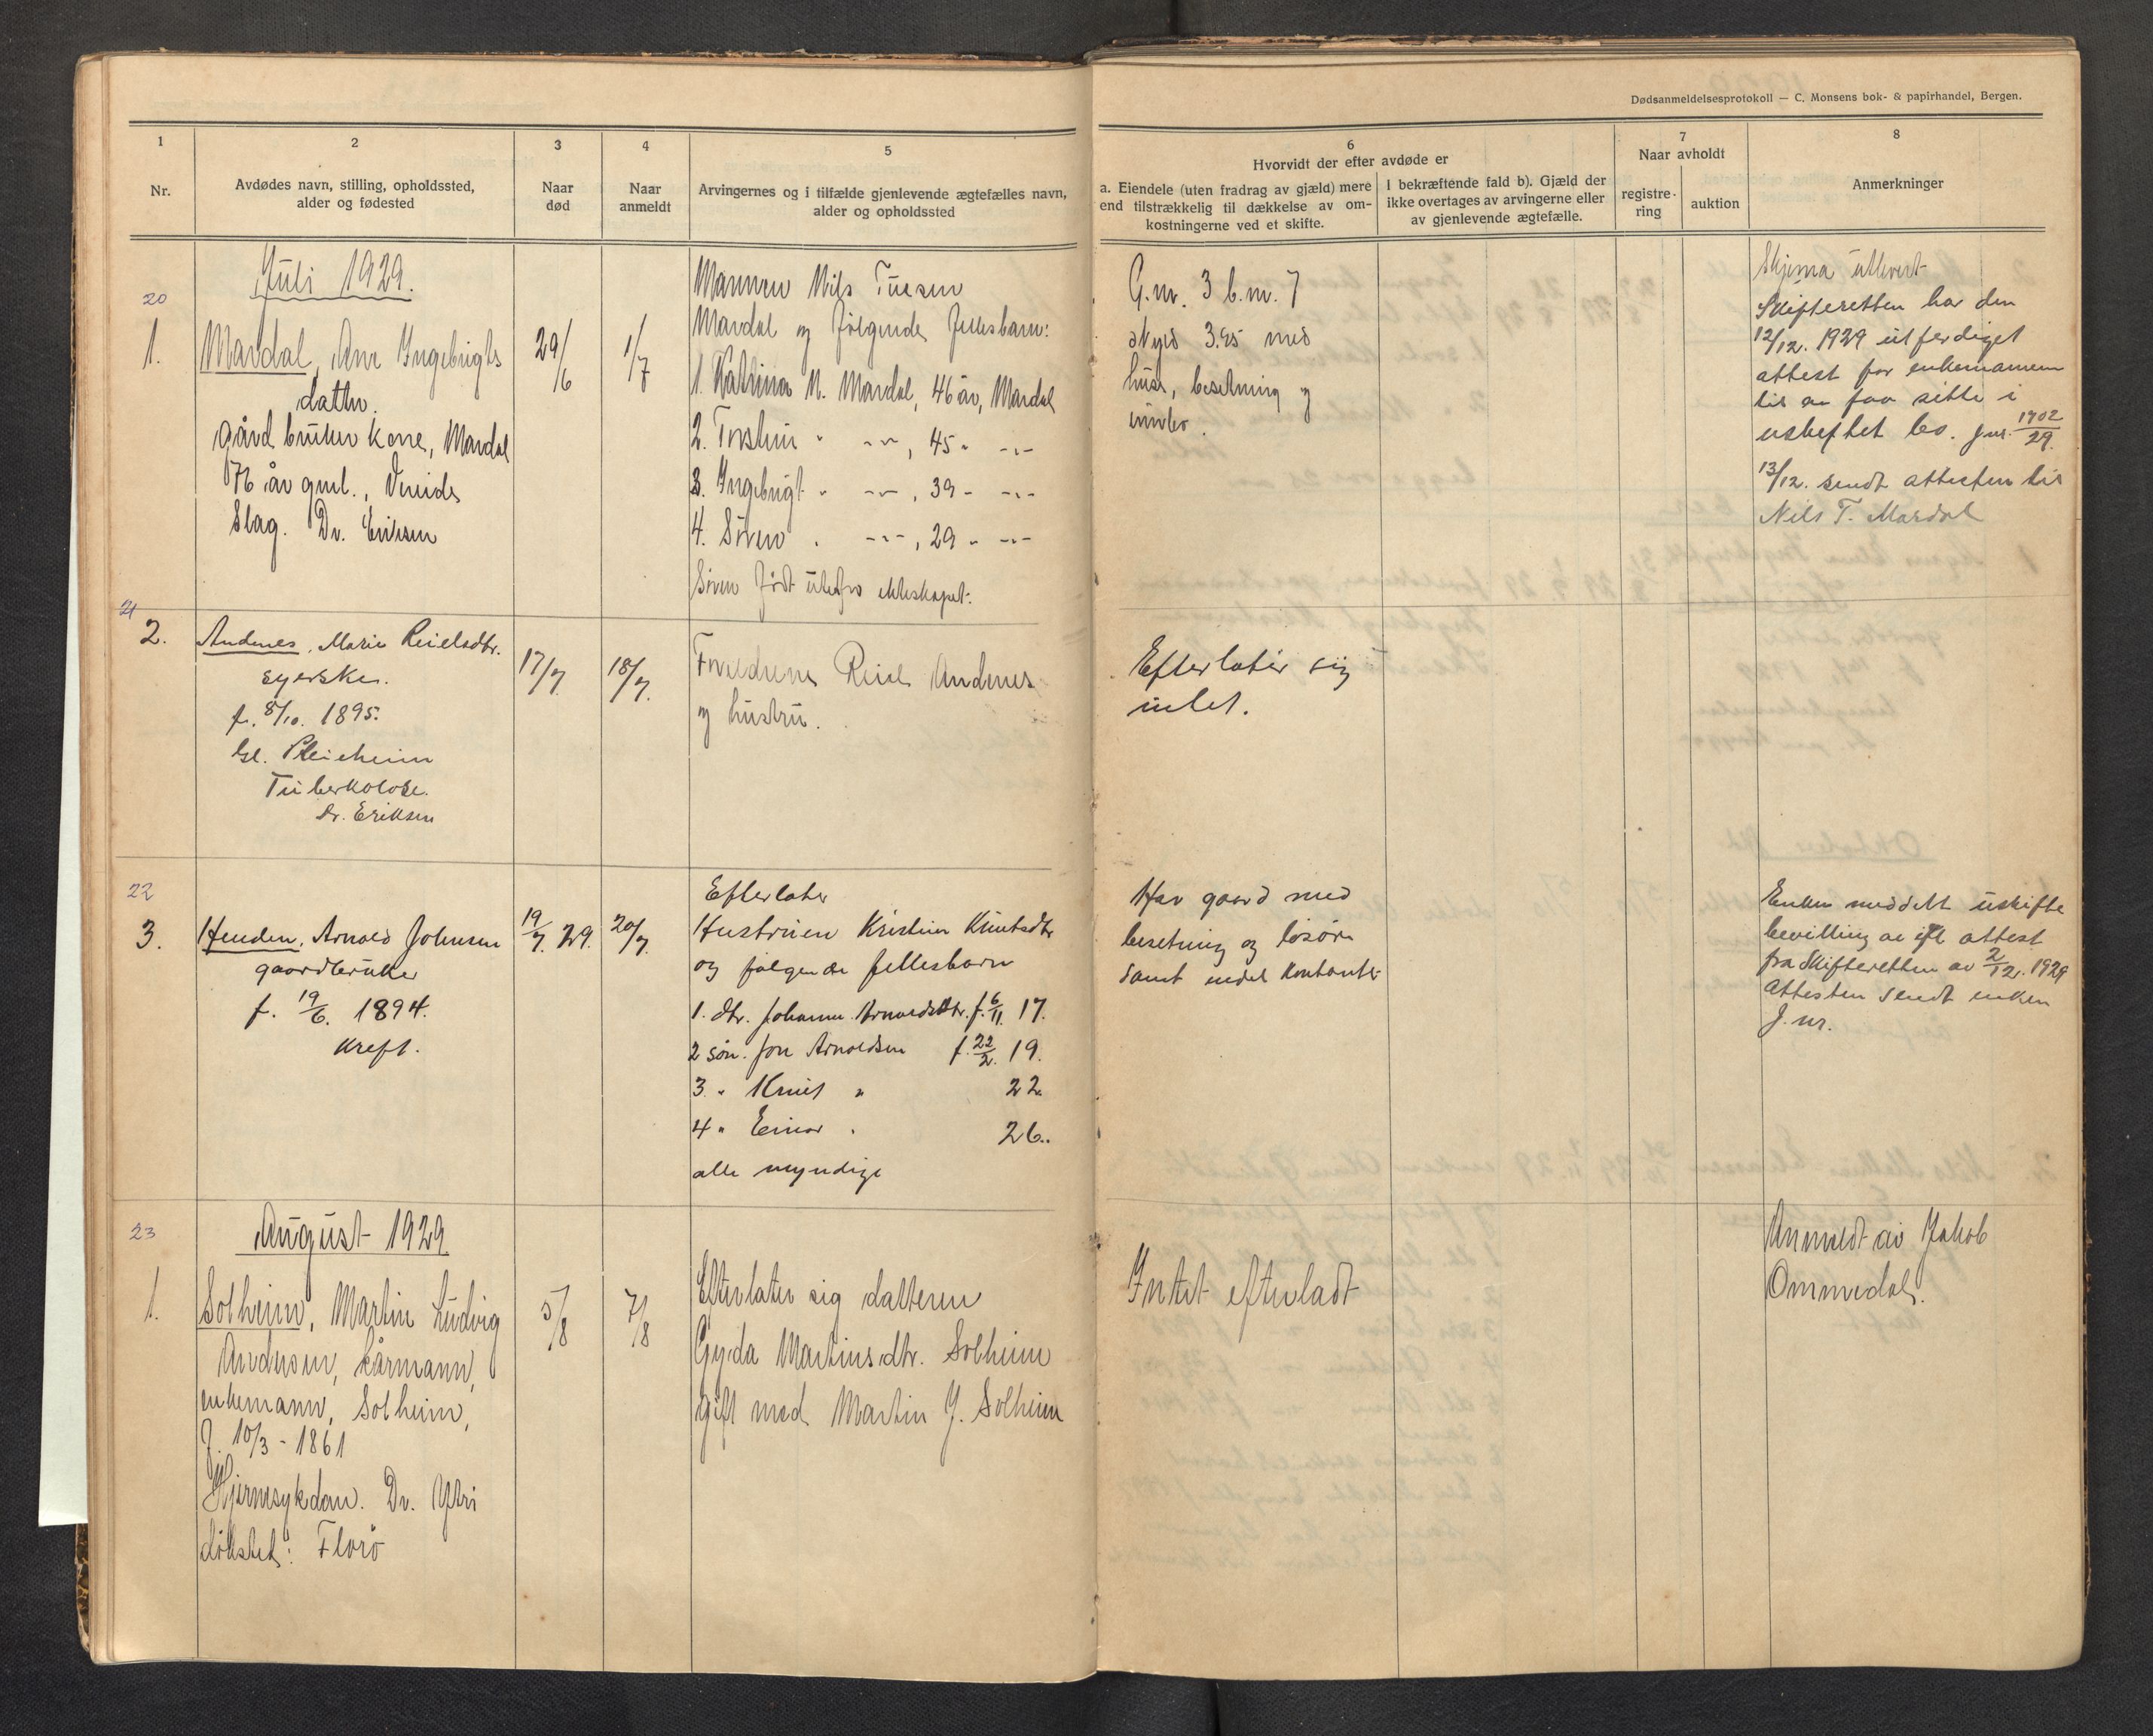 Dødsanmeldelsesprotokoll — C. Monsens bok- & papirhandel, Bergen.
1
Nr.
2
Avdødes navn, stilling, opholdssted,
alder og fødested
3
Naar
død
4
Naar
anmeldt
5
Arvingernes og i tilfælde gjenlevende ægtefælles navn,
alder og opholdssted
6
Hvorvidt der efter avdøde er
a. Eiendele (uten fradrag av gjæld) mere
end tilstrækkelig til dækkelse av om-
kostningerne ved et skifte.
I bekræftende fald b). Gjæld der
ikke overtages av arvingerne eller
av gjenlevende ægtefælle.
7
Naar avholdt
registre-
ring
auktion
8
Anmerkninger
Juli 1929.
20
1.
Mardal, Ane Ingebrigts
datter.
gårdbruker kone, Mardal
76 år gml.,
Slag. Dr. Eriksen
29/6
1/7
Mannen Nils
Mardal og følgende fellesbarn:
1. Katrina N. Mardal, 46 år, Mardal
2. Torstein " -"-, 45 " -"-
3. Ingebrigt " -"-, 39 - -"-
4. Søren . -"-, 29 " -"-
Søren født utenfor ekteskapet.
G.nr. 3 b.nr. 7
skyld 3.25 med
hus, besetning og
innbo.
Skjema utlevert
Skifteretten har den
12/12. 1929 utferdiget
attest for enkemannen
til aa faa sitte i
uskiftet bo. jnr. 1702/29.
13/12. sendt attesten til
Nils T. Mardal
21
2.
Andenes, Marie Reielsdtr.
syerske.
f. 8/10. 1895.
Gl.
Tuberkolose.
Dr. Eriksen
17/7.
18/7.
Foreldrene Reiel Andenes
og hustru.
Efterlater sig
intet.
22
3.
Henden, Arnold Johnsen
gaardbruker
f. 19/6. 1894.
Kreft.
19/7. 29.
20/7.
Efterlater
Hustruen Kristine Knutsdtr
og følgende fellesbarn
1. dtr. Johanne Arnoldsdtr. f. 6/11. 17.
2 søn. Jon Arnoldsen f. 22/2. 19.
3. " Knut " 22.
4 " Einar . 26..
alle myndige
Har gaard med
besetning og løsøre
samt endel kontanter
Enken meddelt uskifte
bevilling attest
fra Skifteretten av 2/12. 1929
Attesten sendt enken
J.nr.
August 1929
23
1.
Solheim, Martin Ludvig
Andersen, kårmann,
enkemann, Solheim,
f. 10/3 - 1861
Hjernesykdom. Dr. Ytri
dødsted: Florø
5/8
7/8
Efterlater sig datteren
Gyda Martinsdtr. Solheim
gift med Martin J. Solheim
Intet efterladt
Anmeldt av Jakob
Ommedal.